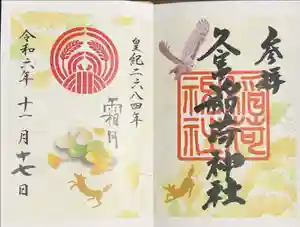 参拝
稲荷神社
稲荷
神社
皇紀二六八四年
霜月
令和六年 十一月 十七日